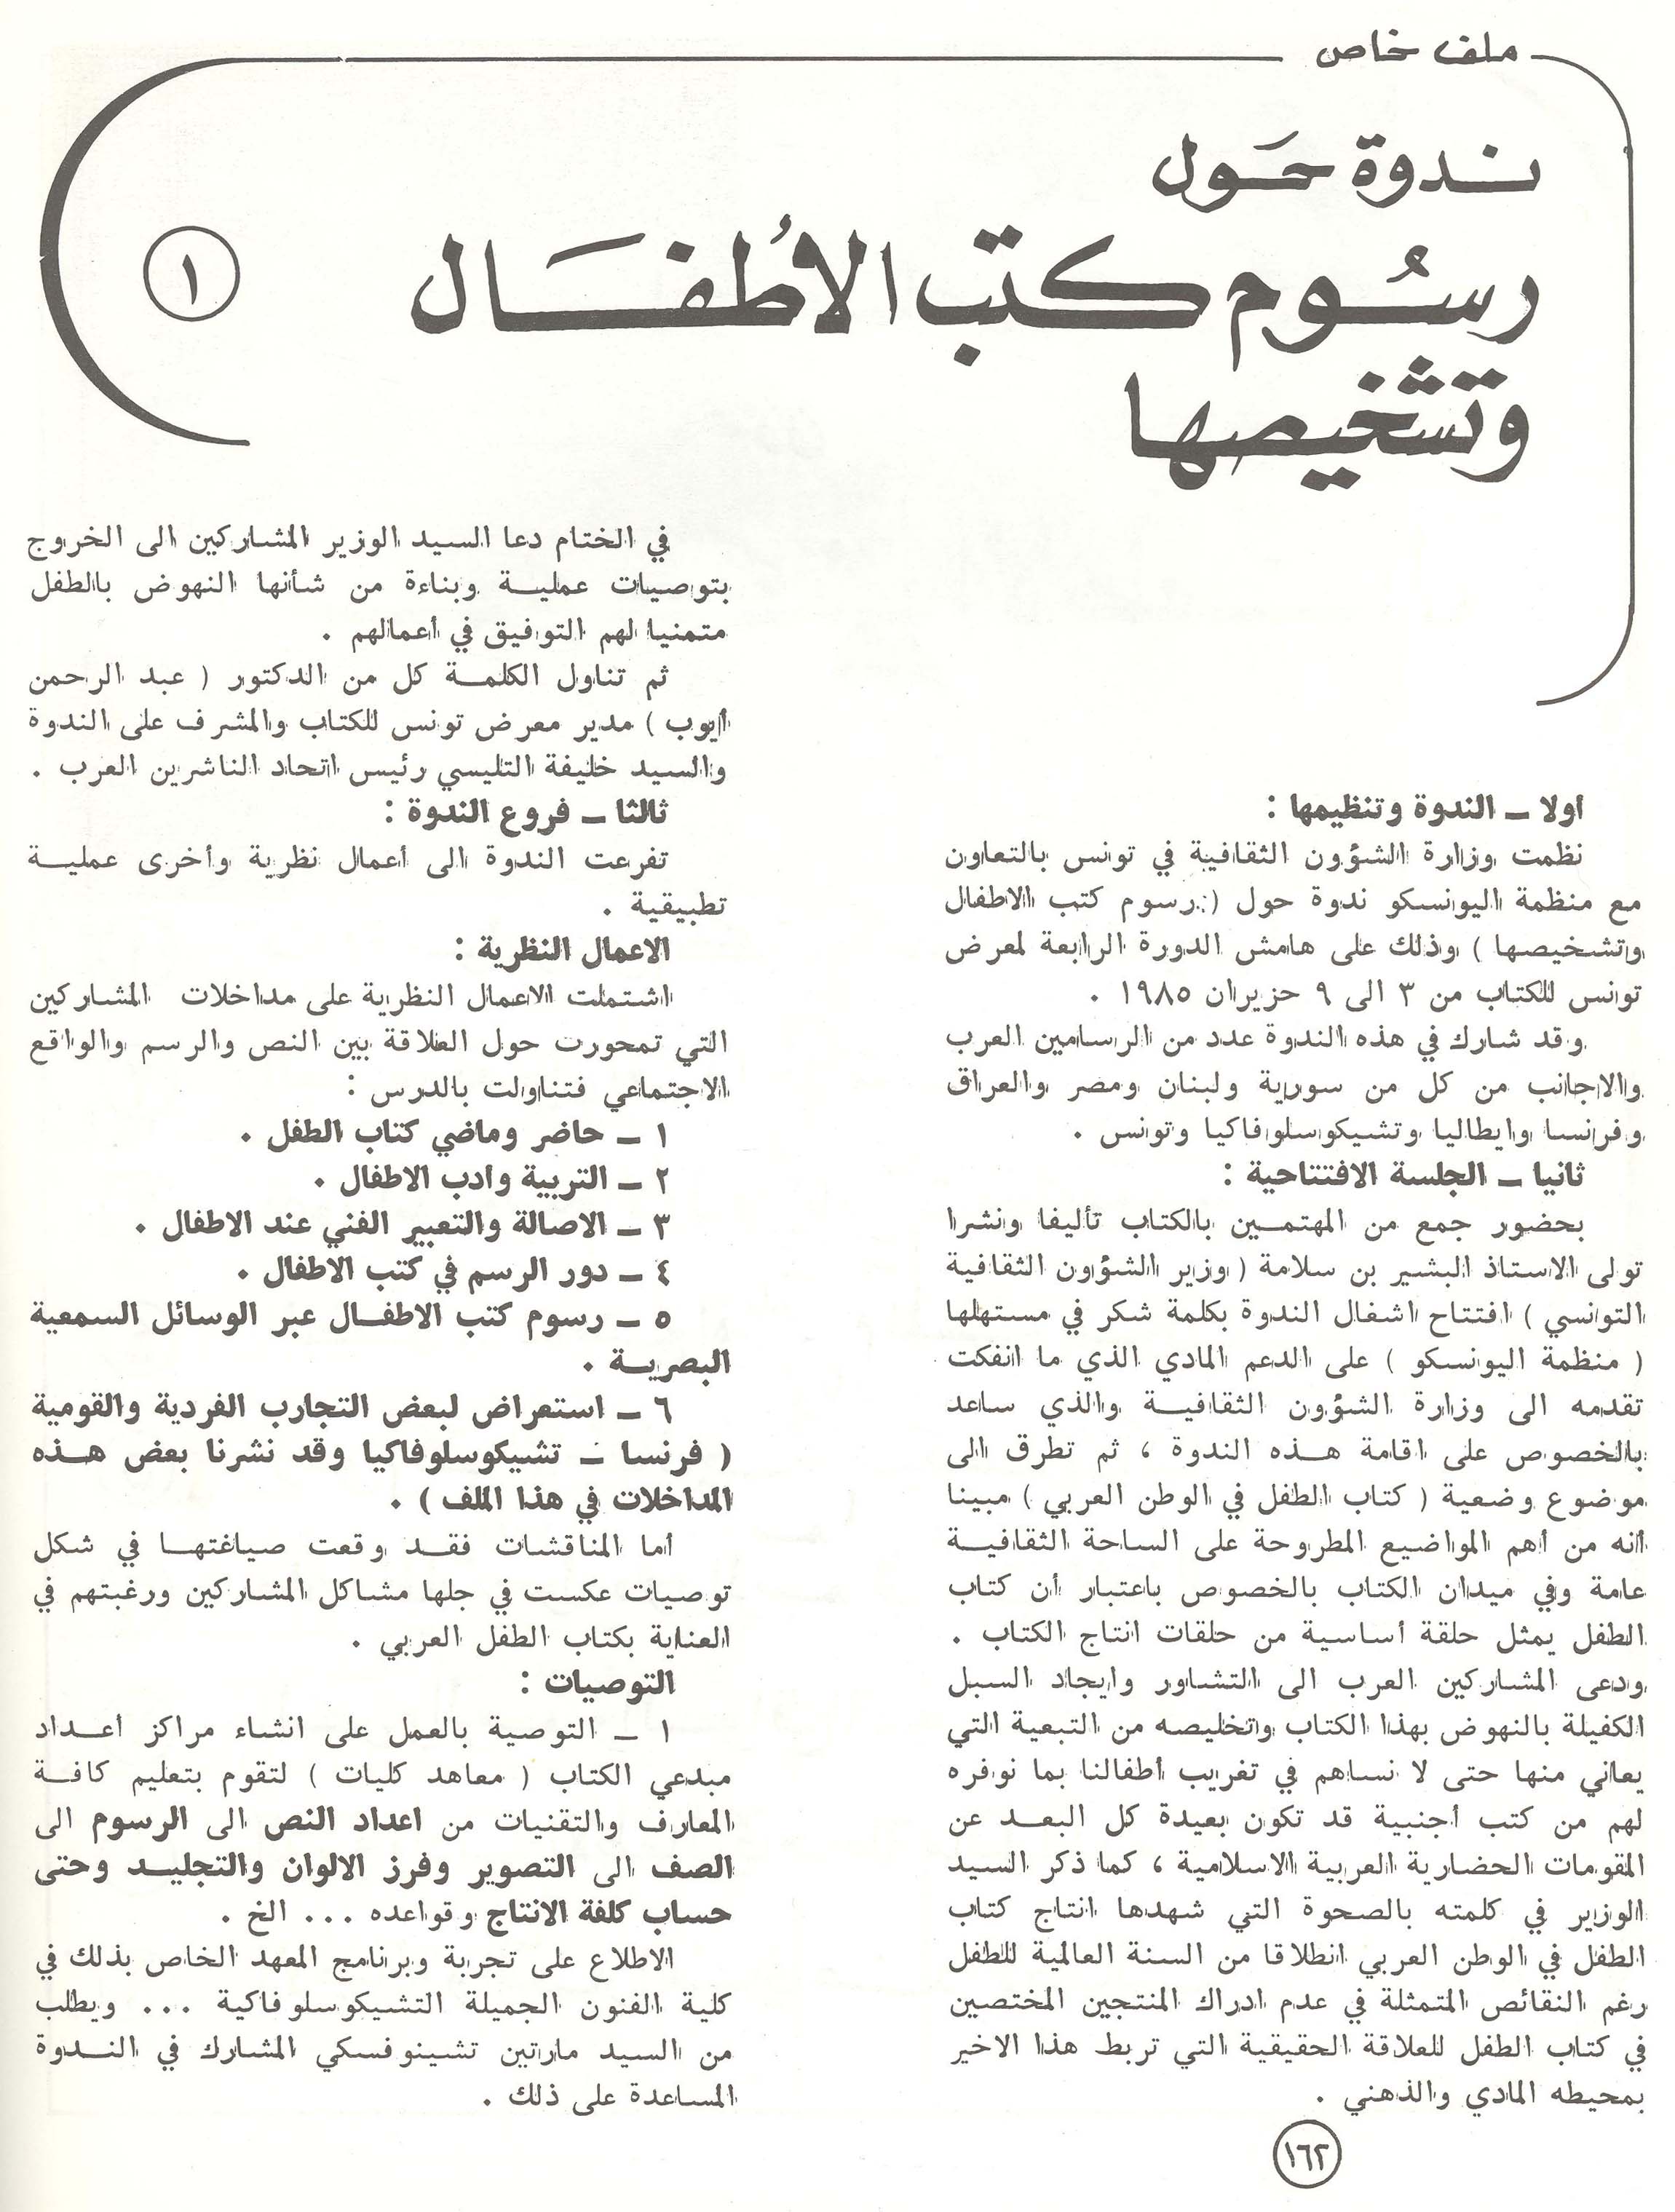 ملف خاص
ندوة حَول
رسُوم كتب الأطفَال
وتشخيصها
١
أولا ــ الندوة وتنظيمها :
نظمت وزارة الشؤون الثقافية في تونس بالتعاون
مع منظمة اليونسكو ندوة حول ( رسوم كتب الاطفال
وتشخيصها ) وذلك على هامش الدورة الرابعة لمعرض
تونس للكتاب من ٣ الى ٩ حزيران ١٩٨٥ .
وقد شارك في هذه الندوة عدد من الرسامين العرب
والاجانب من كل من سورية ولبنان ومصر والعراق
وفرنسا وايطاليا وتشيكوسلوفاكيا وتونس .
ثانيا ــ الجلسة الافتتاحية :
بحضور جمع من المهتمين بالكتاب تأليفا ونشرا
تولى الاستاذ البشير بن سلامة ( وزير الشؤون الثقافية
التونسي ) افتتاح اشغال الندوة بكلمة شكر في مستهلها
( منظمة اليونسكو ) على الدعم المادي الذي ما انفكت
تقدمه الى وزارة الشؤون الثقافية والذي ساعد
بالخصوص على اقامة هذه الندوة ، ثم تطرق الى
موضوع وضعية ( كتاب الطفل في الوطن العربي ) مبينا
انه من أهم المواضيع المطروحة على الساحة الثقافية
عامة وفي ميدان الكتاب بالخصوص باعتبار أن كتاب
الطفل يمثل حلقة أساسية من حلقات انتاج الكتاب .
ودعى المشاركين العرب الى التشاور وايجاد السبل
الكفيلة بالنهوض بهذا الكتاب وتخليصه من التبعية التي
يعاني منها حتى لا نساهم في تغريب أطفالنا بما نوفره
لهم من كتب أجنبية قد تكون بعيدة كل البعد عن
المقومات الحضارية العربية الاسلامية ، كما ذكر السيد
الوزير في كلمته بالصحوة التي شهدها انتاج كتاب
الطفل في الوطن العربي انطلاقا من السنة العالمية للطفل
رغم النقائص المتمثلة في عدم ادراك المنتجين المختصين
في كتاب الطفل للعلاقة الحقيقية التي تربط هذا الاخير
بمحيطه المادي والذهني .
في الختام دعا السيد الوزير المشاركين الى الخروج
بتوصيات عملية وبناءة من شأنها النهوض بالطفل
متمنيا لهم التوفيق في أعمالهم .
ثم تناول الكلمة كل من الدكتور ( عبد الرحمن
أيوب ) مدير معرض تونس للكتاب والمشرف على الندوة
والسيد خليفة التليسي رئيس اتحاد الناشرين العرب .
ثالثا ــ فروع الندوة :
تفرعت الندوة الى أعمال نظرية وأخرى عملية
تطبيقية .
الاعمال النظرية :
اشتملت الاعمال النظرية على مداخلات المشاركين
التي تمحورت حول العلاقة بين النص والرسم والواقع
الاجتماعي فتناولت بالدرس :
١ ــ حاضر وماضي كتاب الطفل .
٢ ــ التربية وادب الاطفال .
٣ ــ الاصالة والتعبير الفني عند الاطفال .
٤ ــ دور الرسم في كتب الاطفال .
٥ ــ رسوم كتب الاطفال عبر الوسائل السمعية
البصرية .
٦ ــ استعراض لبعض التجارب الفردية والقومية
( فرنسا ــ تشيكوسلوفاكيا وقد نشرنا بعض هذه
المداخلات في هذا الملف ) .
أما المناقشات فقد وقعت صياغتها في شكل
توصيات عكست في جلها مشاكل المشاركين ورغبتهم في
العناية بكتاب الطفل العربي .
التوصيات :
١ ــ التوصية بالعمل على انشاء مراكز اعداد
مبدعي الكتاب ( معاهد كليات ) لتقوم بتعليم كافة
المعارف والتقنيات من اعداد النص الى الرسوم الى
الصف الى التصوير وفرز الالوان والتجليد وحتى
حساب كلفة الانتاج وقواعده ... الخ .
الاطلاع على تجربة وبرنامج المعهد الخاص بذلك في
كلية الفنون الجميلة التشيكوسلوفاكية ... ويطلب
من السيد مارتين تشينوفسكي المشارك في الندوة
المساعدة على ذلك .
١٦٢